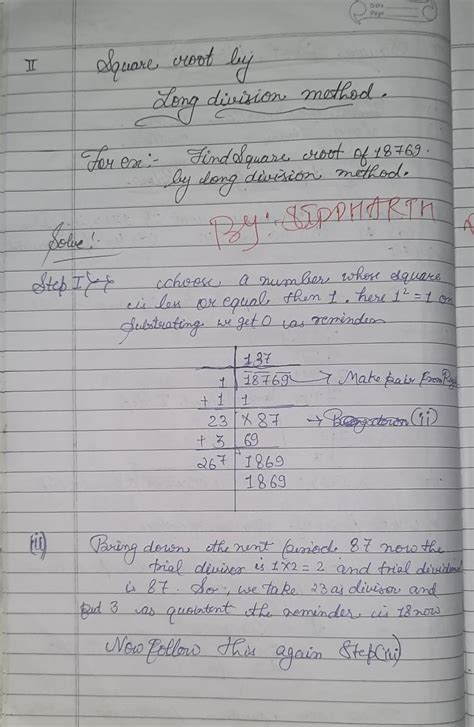 Date
Page
II Square root by
Long division method.
For ex:- Find Square root of 18769.
by long division method.
By:-SIDDHARTH
Solve!
Step I choose a number whose square
is less or equal then 1, here 1² = 1 on
Subtrating we get 0 as reminder
137
1 18769 → Make pair From
+ 1 1
23 × 87 → down (ii)
+ 3 69
267 1869
1869
(ii) Bring down the next period 87 now the
trial divisor is 1×2 = 2 and trial dividend
is 87. So, we take 23 as divisor and
put 3 as quointent the reminder is 18 now
Now follow this again Step(ii)